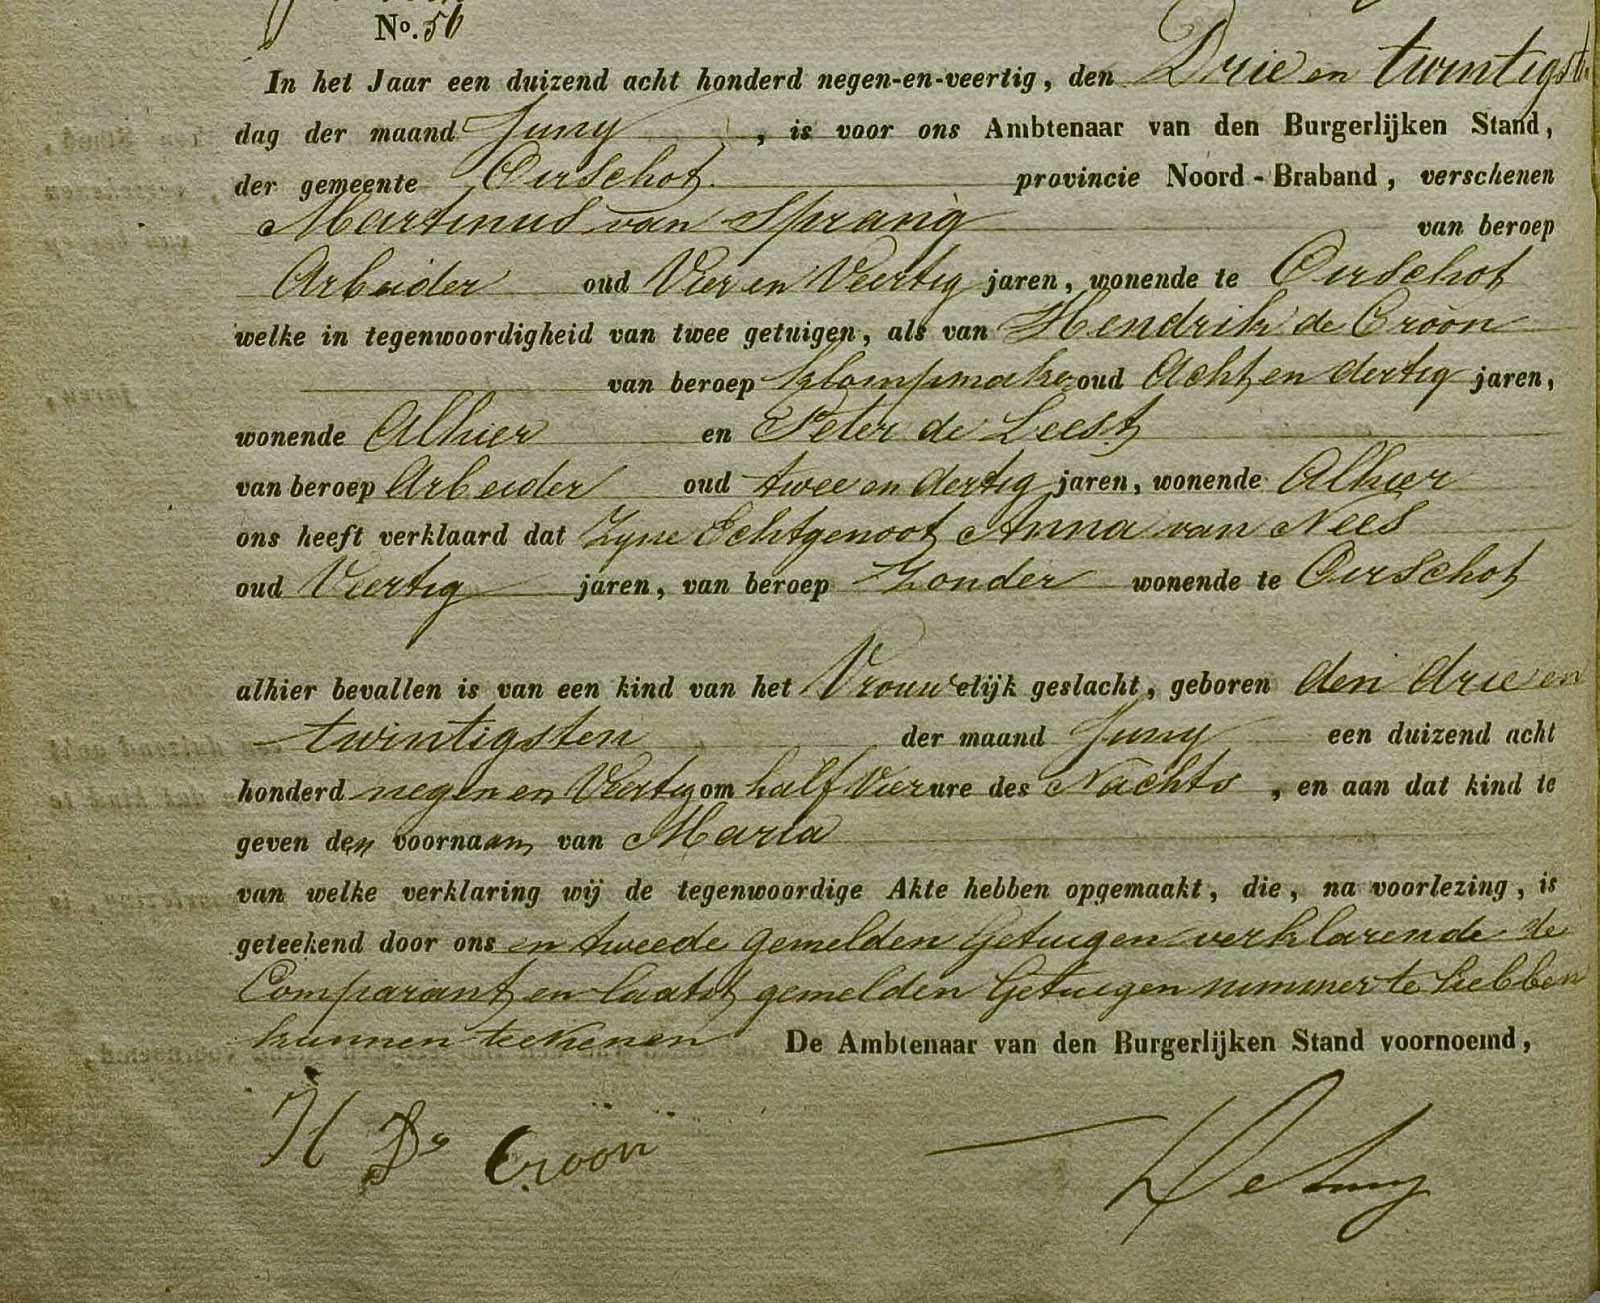 No. 56
In het Jaar een duizend acht honderd negen-en-veertig, den Drie en twintigste
dag der maand Juny, is voor ons Ambtenaar van den Burgerlijken Stand,
der gemeente Oirschot provincie Noord-Braband, verschenen
Martinus van Sprang van beroep
Arbeider oud Vier en Veertig jaren, wonende te Oirschot
welke in tegenwoordigheid van twee getuigen, als van Hendrik de Croön
van beroep klompmaker oud Acht en dertig jaren,
wonende Alhier en Peter de Leest
van beroep Arbeider oud twee en dertig jaren, wonende Alhier
ons heeft verklaard dat Zyne Echtgenoot Anna van Nees
oud Veertig jaren, van beroep Zonder wonende te Oirschot
alhier bevallen is van een kind van het Vrouwelijk geslacht, geboren den drie en
twintigsten der maand Juny een duizend acht
honderd negen en Veertig om half Vier ure des Nachts, en aan dat kind te
geven den voornaam van Maria
van welke verklaring wij de tegenwoordige Akte hebben opgemaakt, die, na voorlezing, is
geteekend door ons en tweede gemelden Getuigen verklarende de
Comparant en laatst gemelden Getuigen nimmer te hebben
kunnen teekenen De Ambtenaar van den Burgerlijken Stand voornoemd,
H De Croön